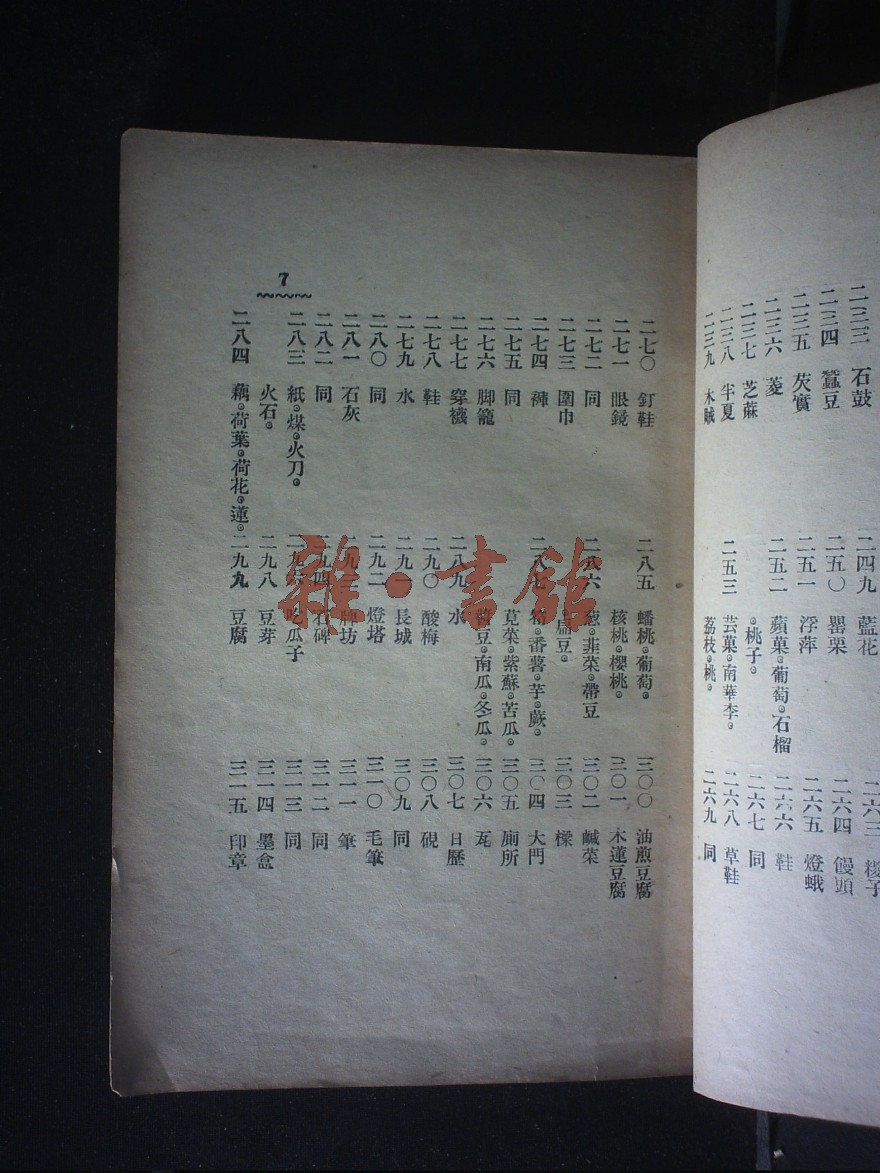 二三三 石鼓
二三四 蠶豆
二三五 芡實
二三六 菱
二三七 芝蔴
二三八 半夏
二三九 木賊
二四九 藍花
二五〇 罌栗
二五一 浮萍
二五二 蘋菓。葡萄。石榴
。桃子。
二五三 芸菓。南華李。
荔枝。桃。
二六三 糉子
二六四 饅頭
二六五 燈蛾
二六六 鞋
二六七 同
二六八 草鞋
二六九 同
7
二七〇 釘鞋
二七一 眼鏡
二七二 同
二七三 圍巾
二七四 褲
二七五 同
二七六 脚籠
二七七 穿襪
二七八 鞋
二七九 水
二八〇 同
二八一 石灰
二八二 同
二八三 紙。煤。火刀。
火石。
二八四 藕。荷葉。荷花。蓮。
二八五 蟠桃。葡萄。
核桃。櫻桃。
二八六 葱。韭菜。帶豆
。扁豆。
二八七 筍。番薯。芋。蕨。
莧菜。紫蘇。苦瓜。
醬豆。南瓜。冬瓜。
二八九 水
二九〇 酸梅
二九一 長城
二九二 燈塔
二九三 牌坊
二九四 石碑
吃瓜子
二九八 豆芽
二九九 豆腐
三〇〇 油煎豆腐
三〇一 木蓮豆腐
三〇二 鹹菜
三〇三 樑
三〇四 大門
三〇五 廁所
三〇六 瓦
三〇七 日歷
三〇八 硯
三〇九 同
三一〇 毛筆
三一一 筆
三一二 同
三一三 同
三一四 墨盒
三一五 印章
雜·書館